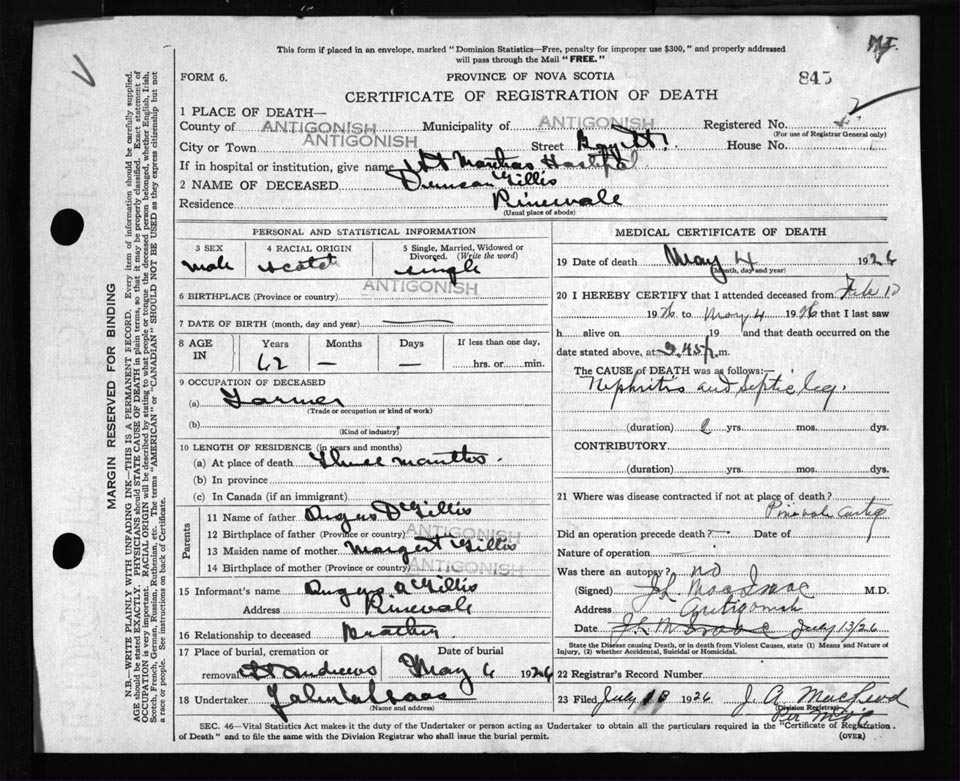 This form if placed in an envelope, marked "Dominion Statistics—Free, penalty for improper use $300," and properly addressed
will pass through the Mail "FREE."
FORM 6.
PROVINCE OF NOVA SCOTIA
845
CERTIFICATE OF REGISTRATION OF DEATH
1 PLACE OF DEATH—
County of ANTIGONISH Municipality of ANTIGONISH Registered No.
(For use of Registrar General only)
City or Town ANTIGONISH Street House No.
If in hospital or institution, give name St Marthas Hospital
2 NAME OF DECEASED Duncan Gillis
Residence Pinevale
(Usual place of abode)
PERSONAL AND STATISTICAL INFORMATION
3 SEX
male
4 RACIAL ORIGIN
Scotch
5 Single, Married, Widowed or
Divorced. (Write the word)
single
6 BIRTHPLACE (Province or country) ANTIGONISH
7 DATE OF BIRTH (month, day and year) —
8 AGE
IN
Years
62
Months
—
Days
—
If less than one day,
hrs. or min.
9 OCCUPATION OF DECEASED
(a) Farmer
(Trade or occupation or kind of work)
(b)
(Kind of industry)
10 LENGTH OF RESIDENCE (in years and months)
(a) At place of death Three months.
(b) In province
(c) In Canada (if an immigrant)
Parents
11 Name of father Angus D Gillis
12 Birthplace of father (Province or country) ANTIGONISH
13 Maiden name of mother Margert Gillis
14 Birthplace of mother (Province or country) ANTIGONISH
15 Informant's name Angus A Gillis
Address Pinevale
16 Relationship to deceased Brother
17 Place of burial, cremation or Date of burial
removal St Andrews May 6 1926
18 Undertaker
(Name and address)
MEDICAL CERTIFICATE OF DEATH
19 Date of death May 4 1926
(Month, day and year)
20 I HEREBY CERTIFY that I attended deceased from Feb 10
1926 to May 4 1926 that I last saw
h alive on 19 and that death occurred on the
date stated above, at 3.45 P. m.
The CAUSE OF DEATH was as follows:—
Nephritis and septic leg.
(duration) 2 yrs. mos. dys.
CONTRIBUTORY
(duration) yrs. mos. dys.
21 Where was disease contracted if not at place of death?
Pinevale Antig
Did an operation precede death? — Date of
Nature of operation —
Was there an autopsy? no
(Signed) J L MacIsaac M.D.
Address Antigonish
Date July 13/26
State the Disease causing Death, or in death from Violent Causes, state (1) Means and Nature of
Injury, (2) whether Accidental, Suicidal or Homicidal.
22 Registrar's Record Number
23 Filed July 18 1926 J. A. MacLeod
(Division Registrar)
SEC. 46—Vital Statistics Act makes it the duty of the Undertaker or person acting as Undertaker to obtain all the particulars required in the "Certificate of Registration
of Death" and to file the same with the Division Registrar who shall issue the burial permit.
(OVER)
MARGIN RESERVED FOR BINDING
N.B.—WRITE PLAINLY WITH UNFADING INK—THIS IS A PERMANENT RECORD. Every item of information should be carefully supplied.
AGE should be stated EXACTLY. PHYSICIANS should STATE CAUSE OF DEATH in plain terms, so that it may be properly classified. Exact statement of
OCCUPATION is very important. RACIAL ORIGIN will be described by stating to what people or tongue the deceased person belonged, whether English, Irish,
Scotch, French, German, Russian, Ruthenian, etc. The terms "AMERICAN" or "CANADIAN" SHOULD NOT BE USED as they express citizenship but not
a race or people. See instructions on back of Certificate.